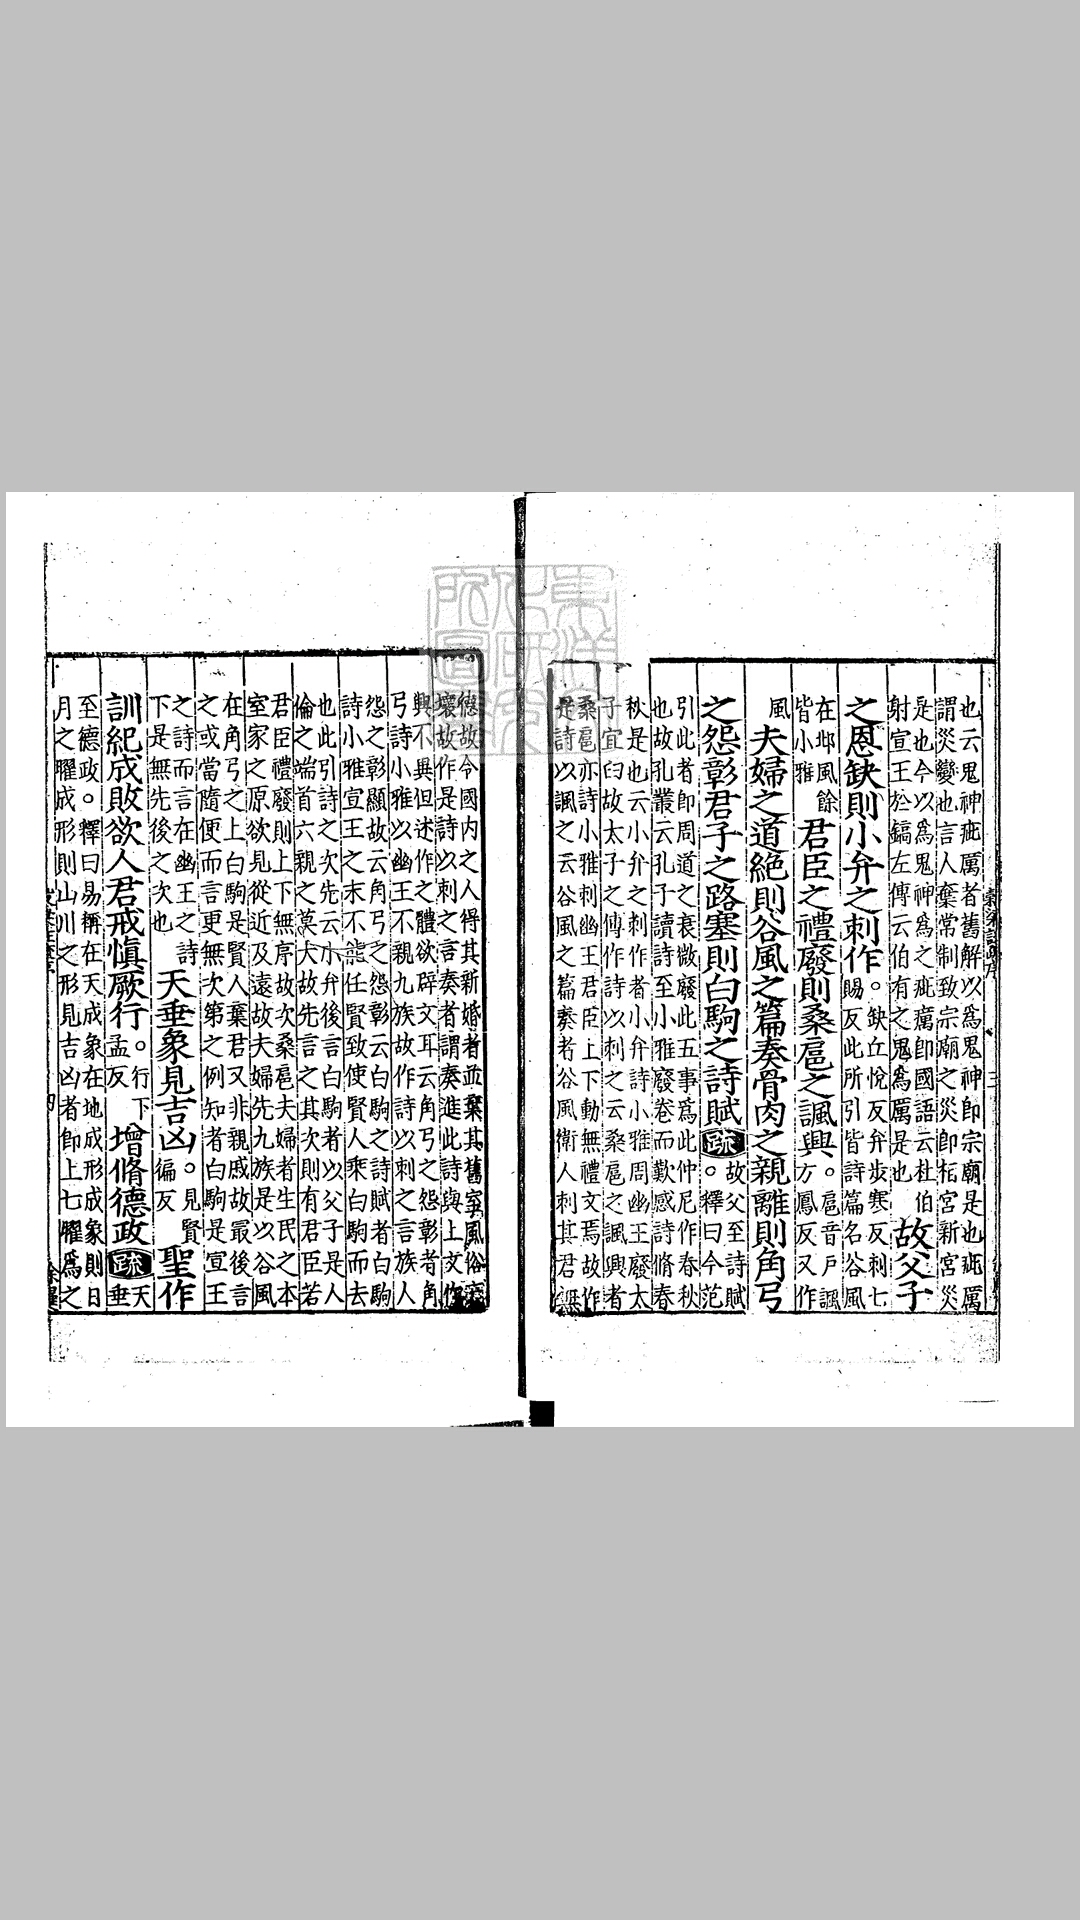 也云鬼神疵厲者舊解以為鬼神即宗廟是也疵厲
謂災變也言人棄常制致宗廟之災即桓宮新宮災
是也今以為鬼神為之疵癘即國語云杜伯
射宣王於鎬左傳云伯有之鬼為厲是也
故父子
之恩缺則小弁之刺作
。缺丘悅反弁步寒反刺七
賜反此所引皆詩篇名谷風
在邶風餘
皆小雅
君臣之禮廢則桑扈之諷興
。扈音戶諷
方鳳反又作
風
夫婦之道絕則谷風之篇奏骨肉之親離則角弓
之怨彰君子之路塞則白駒之詩賦
疏
故父至詩賦
。釋曰今范
引此者即周道之衰微廢此五事為此仲尼作春秋
也故孔叢云孔子讀詩至小雅廢卷而歎感詩脩春
秋是也云小弁之刺作者小弁詩小雅周幽王廢太
子宜臼故太子之傅作詩以刺之云桑扈之諷興者
桑扈亦詩小雅刺幽王君臣上下動無禮文焉故作
是詩以諷之云谷風之篇奏者谷風衛人刺其君無
德故令國內之人得其新婚者並棄其舊室風俗衰
壞故作是詩以刺之言奏者謂奏進此詩與上文作
興不異但述作之體欲辟文耳云角弓之怨彰者角
弓詩小雅以幽王不親九族故作詩以刺之言族人
怨之彰顯故云角弓之怨彰云白駒之詩賦者白駒
詩小雅宣王之末不能任賢致使賢人乘白駒而去
也此引詩之次先云小弁後言白駒者以父子是人
倫之端首六親之莫大故先言之其次則有君臣若
君臣禮廢則上下無序故次桑扈夫婦者生民之本
室家之原欲見從近及遠故夫婦先九族是以谷風
在角弓之上白駒是賢人棄君又非親戚故最後言
之或當隨便而言更無次第之例知者白駒是宣王
之詩而言在幽王之詩
下是無先後之次也
天垂象見吉凶
。見賢
徧反
聖作
訓紀成敗欲人君戒慎厥行
。行下
孟反
增脩德政
疏
天垂
至德政。釋曰易稱在天成象在地成形成象則日
月之曜成形則山川之形見吉凶者即上七曜為之